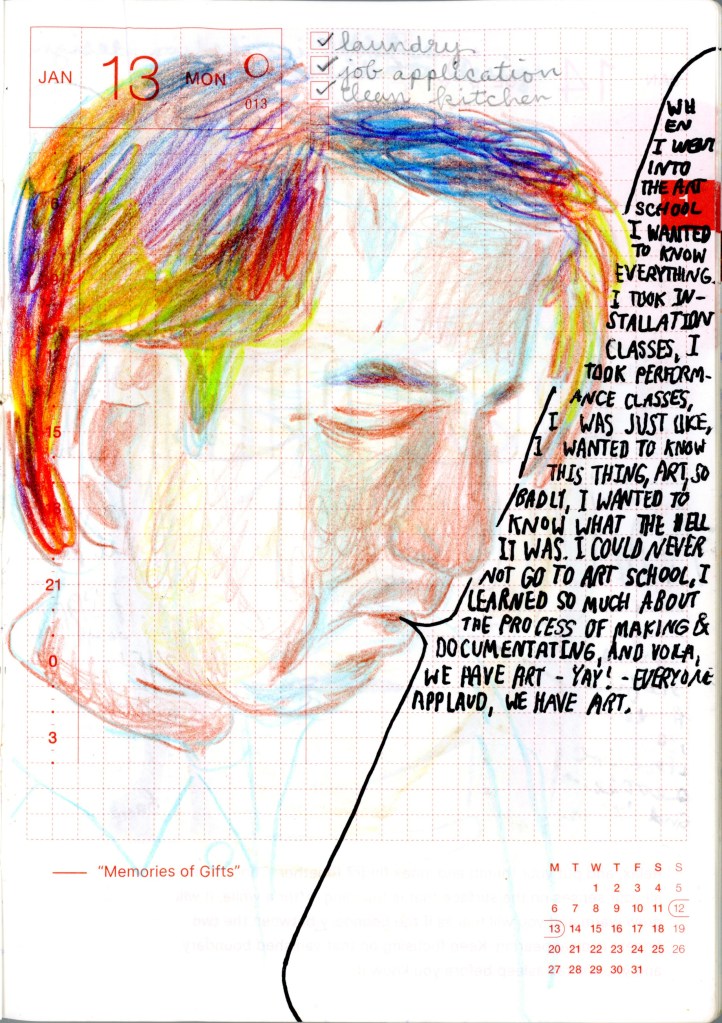 JAN 13 MON
013
laundry
job application
clean kitchen
WH
EN
I WENT
INTO
THE ART
SCHOOL
I WANTED
TO KNOW
EVERYTHING.
I TOOK IN-
STALLATION
CLASSES, I
TOOK PERFORM-
ANCE CLASSES,
I WAS JUST LIKE,
I WANTED TO KNOW
THIS THING, ART, SO
BADLY, I WANTED TO
KNOW WHAT THE HELL
IT WAS. I COULD NEVER
NOT GO TO ART SCHOOL, I
LEARNED SO MUCH ABOUT
THE PROCESS OF MAKING &
DOCUMENTATING, AND VOILA,
WE HAVE ART - YAY! - EVERYONE
APPLAUD, WE HAVE ART.
15
21
0
3
"Memories of Gifts"
M T W T F S S
1 2 3 4 5
6 7 8 9 10 11 12
13 14 15 16 17 18 19
20 21 22 23 24 25 26
27 28 29 30 31